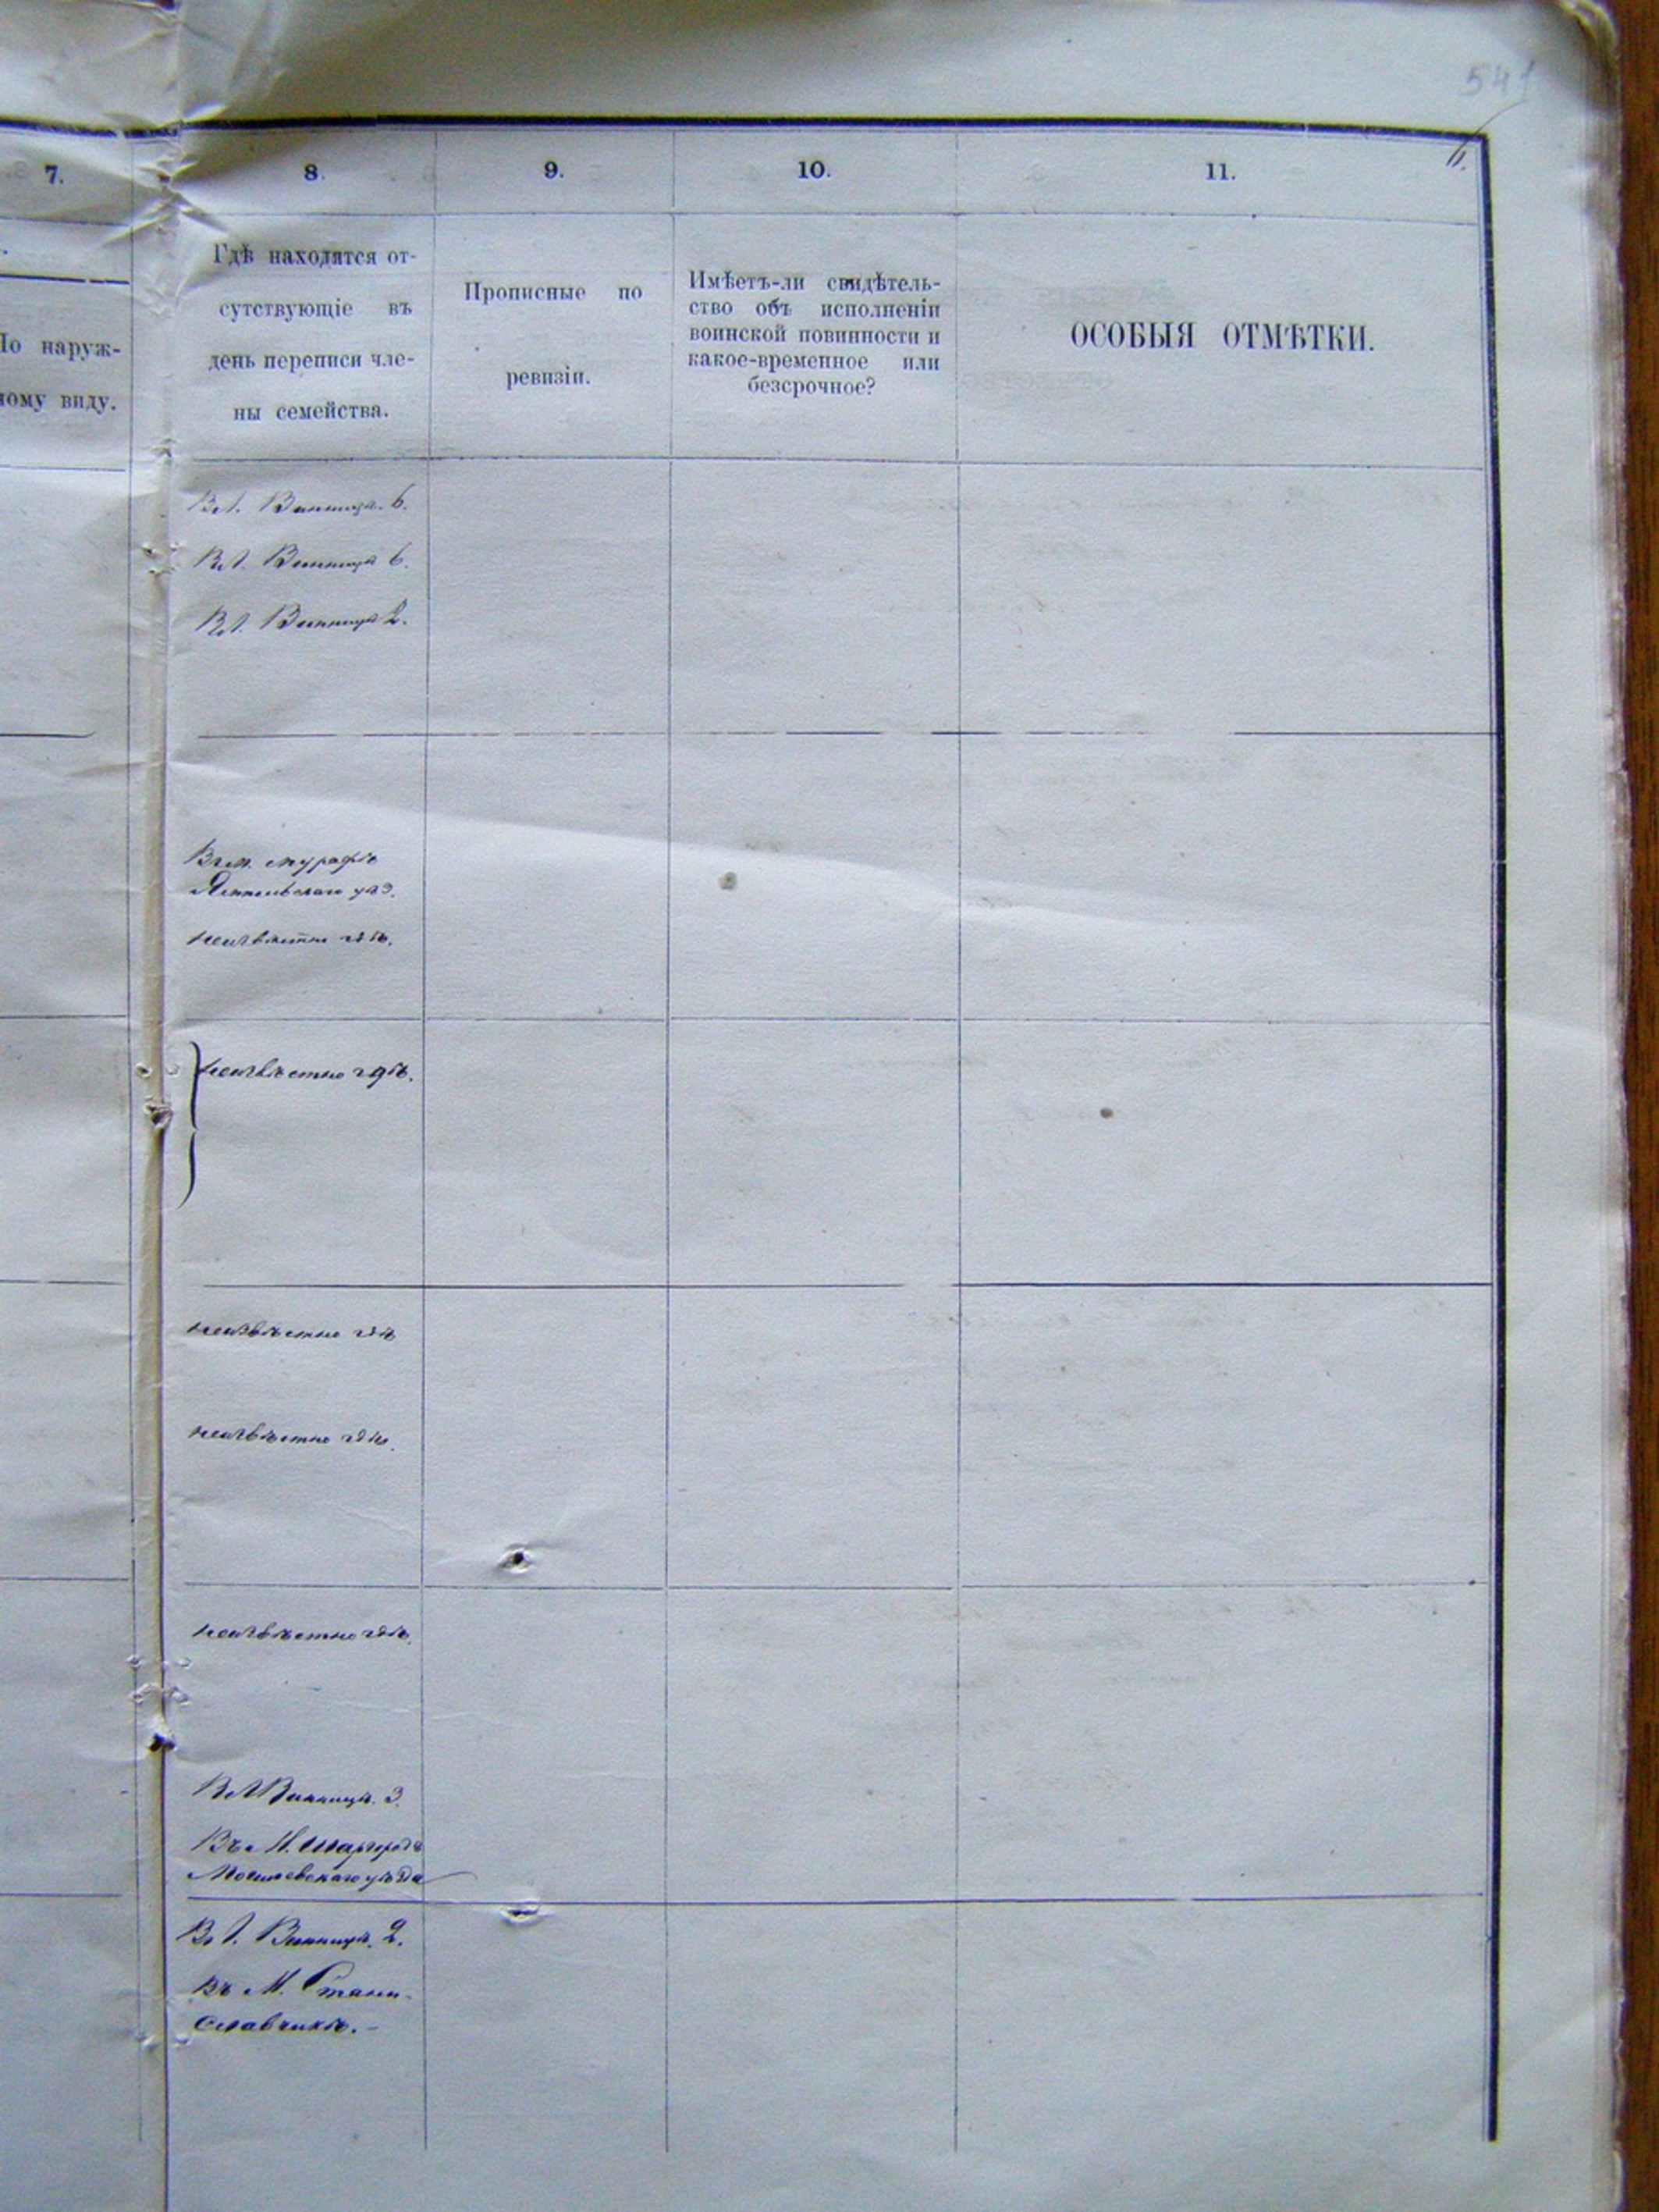 541
7.
8.
9.
10.
11.
По наруж-
ному виду.
Гдѣ находятся от-
сутствующіе въ
день переписи чле-
ны семейства.
Прописные по
ревизіи.
Имѣетъ-ли свидѣтель-
ство объ исполненіи
воинской повинности и
какое-временное или
безсрочное?
ОСОБЫЯ ОТМѢТКИ.
Винница. 6.
Винница 6.
Винница 2.
Въ м. Мурафѣ
Ямпольскаго уѣз.
неизвѣстно гдѣ.
неизвѣстно гдѣ.
неизвѣстно гдѣ
неизвѣстно гдѣ.
неизвѣстно гдѣ.
Винница. 3.
Въ М. Шаргородѣ
Могилевскаго уѣзда
Винница. 2.
Въ М. Стани-
славчикѣ. -